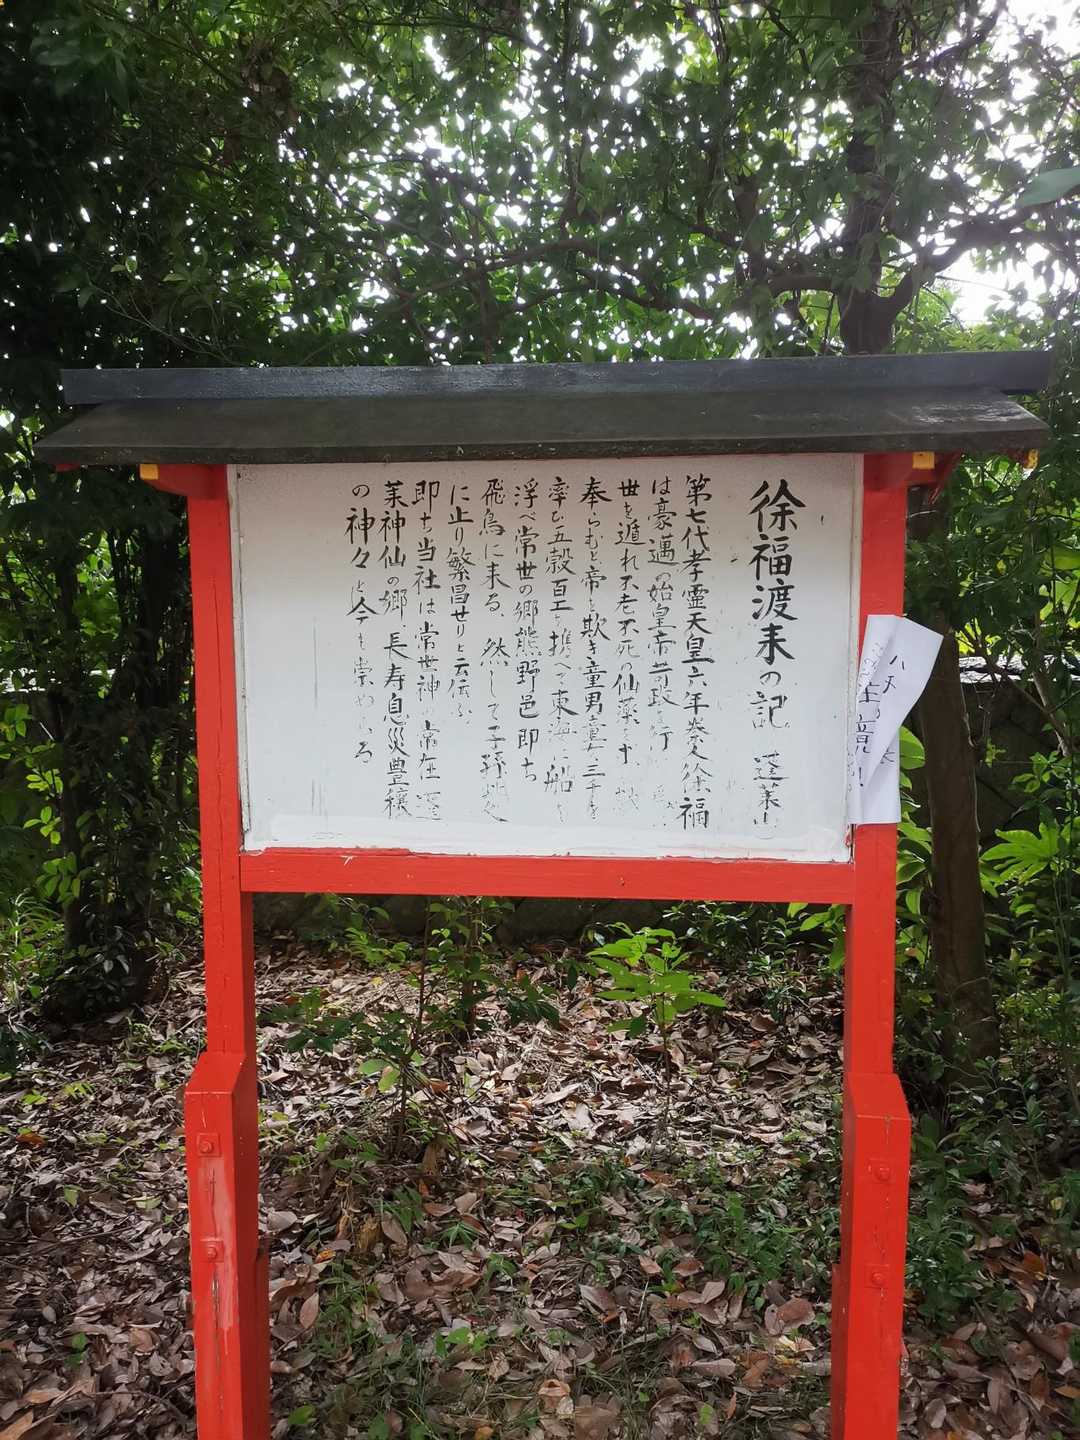 徐福渡来の記 蓬莱山
第七代孝霊天皇六年秦人徐福
は豪邁の始皇帝苛政を行
世を遁れ不老不死の仙薬を
奉らむと帝を欺き童男童女三千を
率ひ五穀百工を携へて東海に船を
浮べ常世の郷熊野邑即ち
飛鳥に来る、然して子孫
に止り繁昌せりと云伝ふ。
即ち当社は常世神の常在
莱神仙の郷 長寿息災豊穣
の神々と今も崇めらる
ハチ
注意!